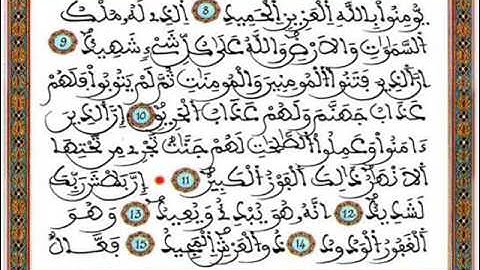 يُومِنُوا۟ بِاللَّهِ الْعَزِيزِ الْحَمِيدِ 8 الَّذِى لَهُۥ مُلْكُ
السَّمَٰوَٰتِ وَالَارْضِ وَاللَّهُ عَلَىٰ كُلِّ شَےْءٍ شَهِيدٌ 9
إِنَّ الَّذِينَ فَتَنُوا۟ الْمُومِنِينَ وَالْمُومِنَٰتِ ثُمَّ لَمْ يَتُوبُوا۟ فَلَهُمْ
عَذَابُ جَهَنَّمَ وَلَهُمْ عَذَابُ الْحَرِيقِ 10 إِنَّ الَّذِينَ
ءَامَنُوا۟ وَعَمِلُوا۟ الصَّٰلِحَٰتِ لَهُمْ جَنَّٰتٌ تَجْرِى مِن تَحْتِهَا
الَانْهَٰرُ ذَٰلِكَ الْفَوْزُ الْكَبِيرُ 11 إِنَّ بَطْشَ رَبِّكَ
لَشَدِيدٌ 12 اِنَّهُۥ هُوَ يُبْدِئُ وَيُعِيدُ 13 وَهُوَ
الْغَفُورُ الْوَدُودُ 14 ذُو الْعَرْشِ الْمَجِيدُ 15 فَعَّالٌ